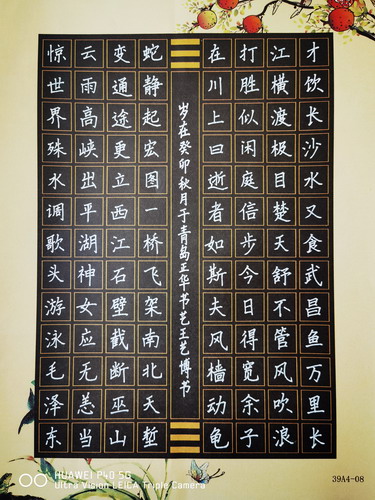 才饮长沙水又食武昌鱼万里长
江横渡极目楚天舒不管风吹浪
打胜似闲庭信步今日得宽余子
在川上曰逝者如斯夫风樯动龟
岁在癸卯秋月于青岛正华书艺王艺博书
蛇静起宏图一桥飞架南北天堑
变通途更立西江石壁截断巫山
云雨高峡出平湖神女应无恙当
惊世界殊水调歌头游泳毛泽东
39A4-08
HUAWEI P40 5G
Ultra Vision LEICA Triple Camera